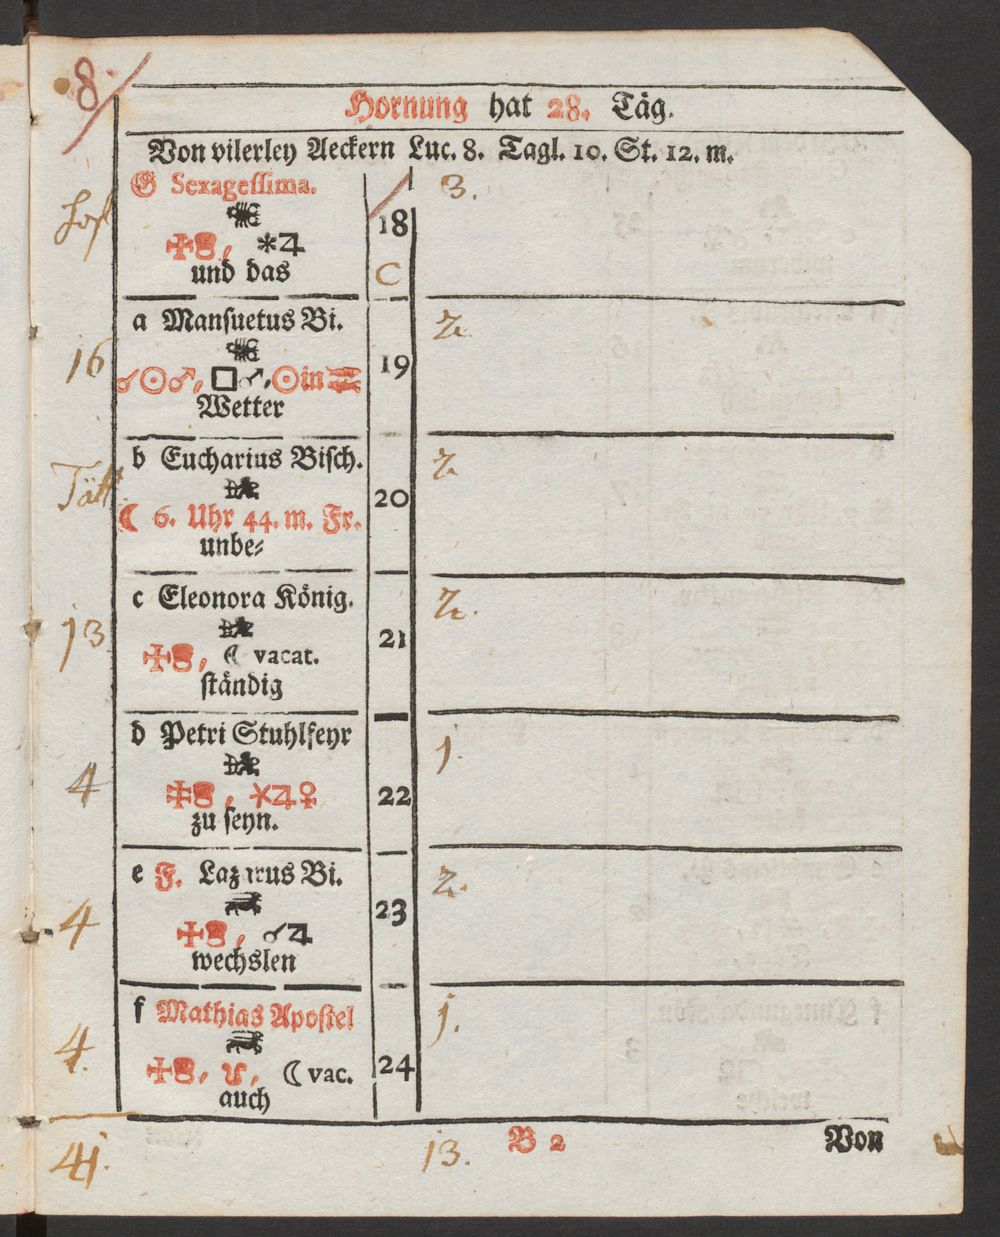 8.
Hornung hat 28. Täg.
Von vilerley Aeckern Luc. 8. Tagl. 10. St. 12. m.
G Sexagessima.
18
3.
✠, ✶♃
und das
C
a Mansuetus Bi.
2.
16
19
☌☉♂, □♂, ☉in♓
Wetter
b Eucharius Bisch.
2.
20
☾ 6. Uhr 44. m. Fr.
unbe⸗
c Eleonora König.
2.
13
21
✠, ☾ vacat.
ständig
d Petri Stuhlfeyr
1.
4
22
✠, ✶♃♀
zu seyn.
e F. Lazarus Bi.
2.
4
23
✠, ☌♃
wechslen
f Mathias Apostel
1.
4.
24
✠, ☾ vac.
auch
B 2
Von
41.
13.